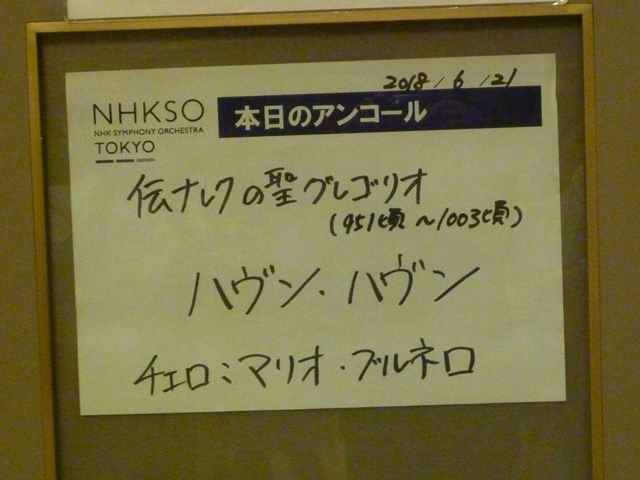 2018 / 6 / 21
NHKSO
NHK SYMPHONY ORCHESTRA
TOKYO
本日のアンコール
伝ナレクの聖グレゴリオ
(951頃~1003頃)
ハヴン・ハヴン
チェロ:マリオ・ブルネロ